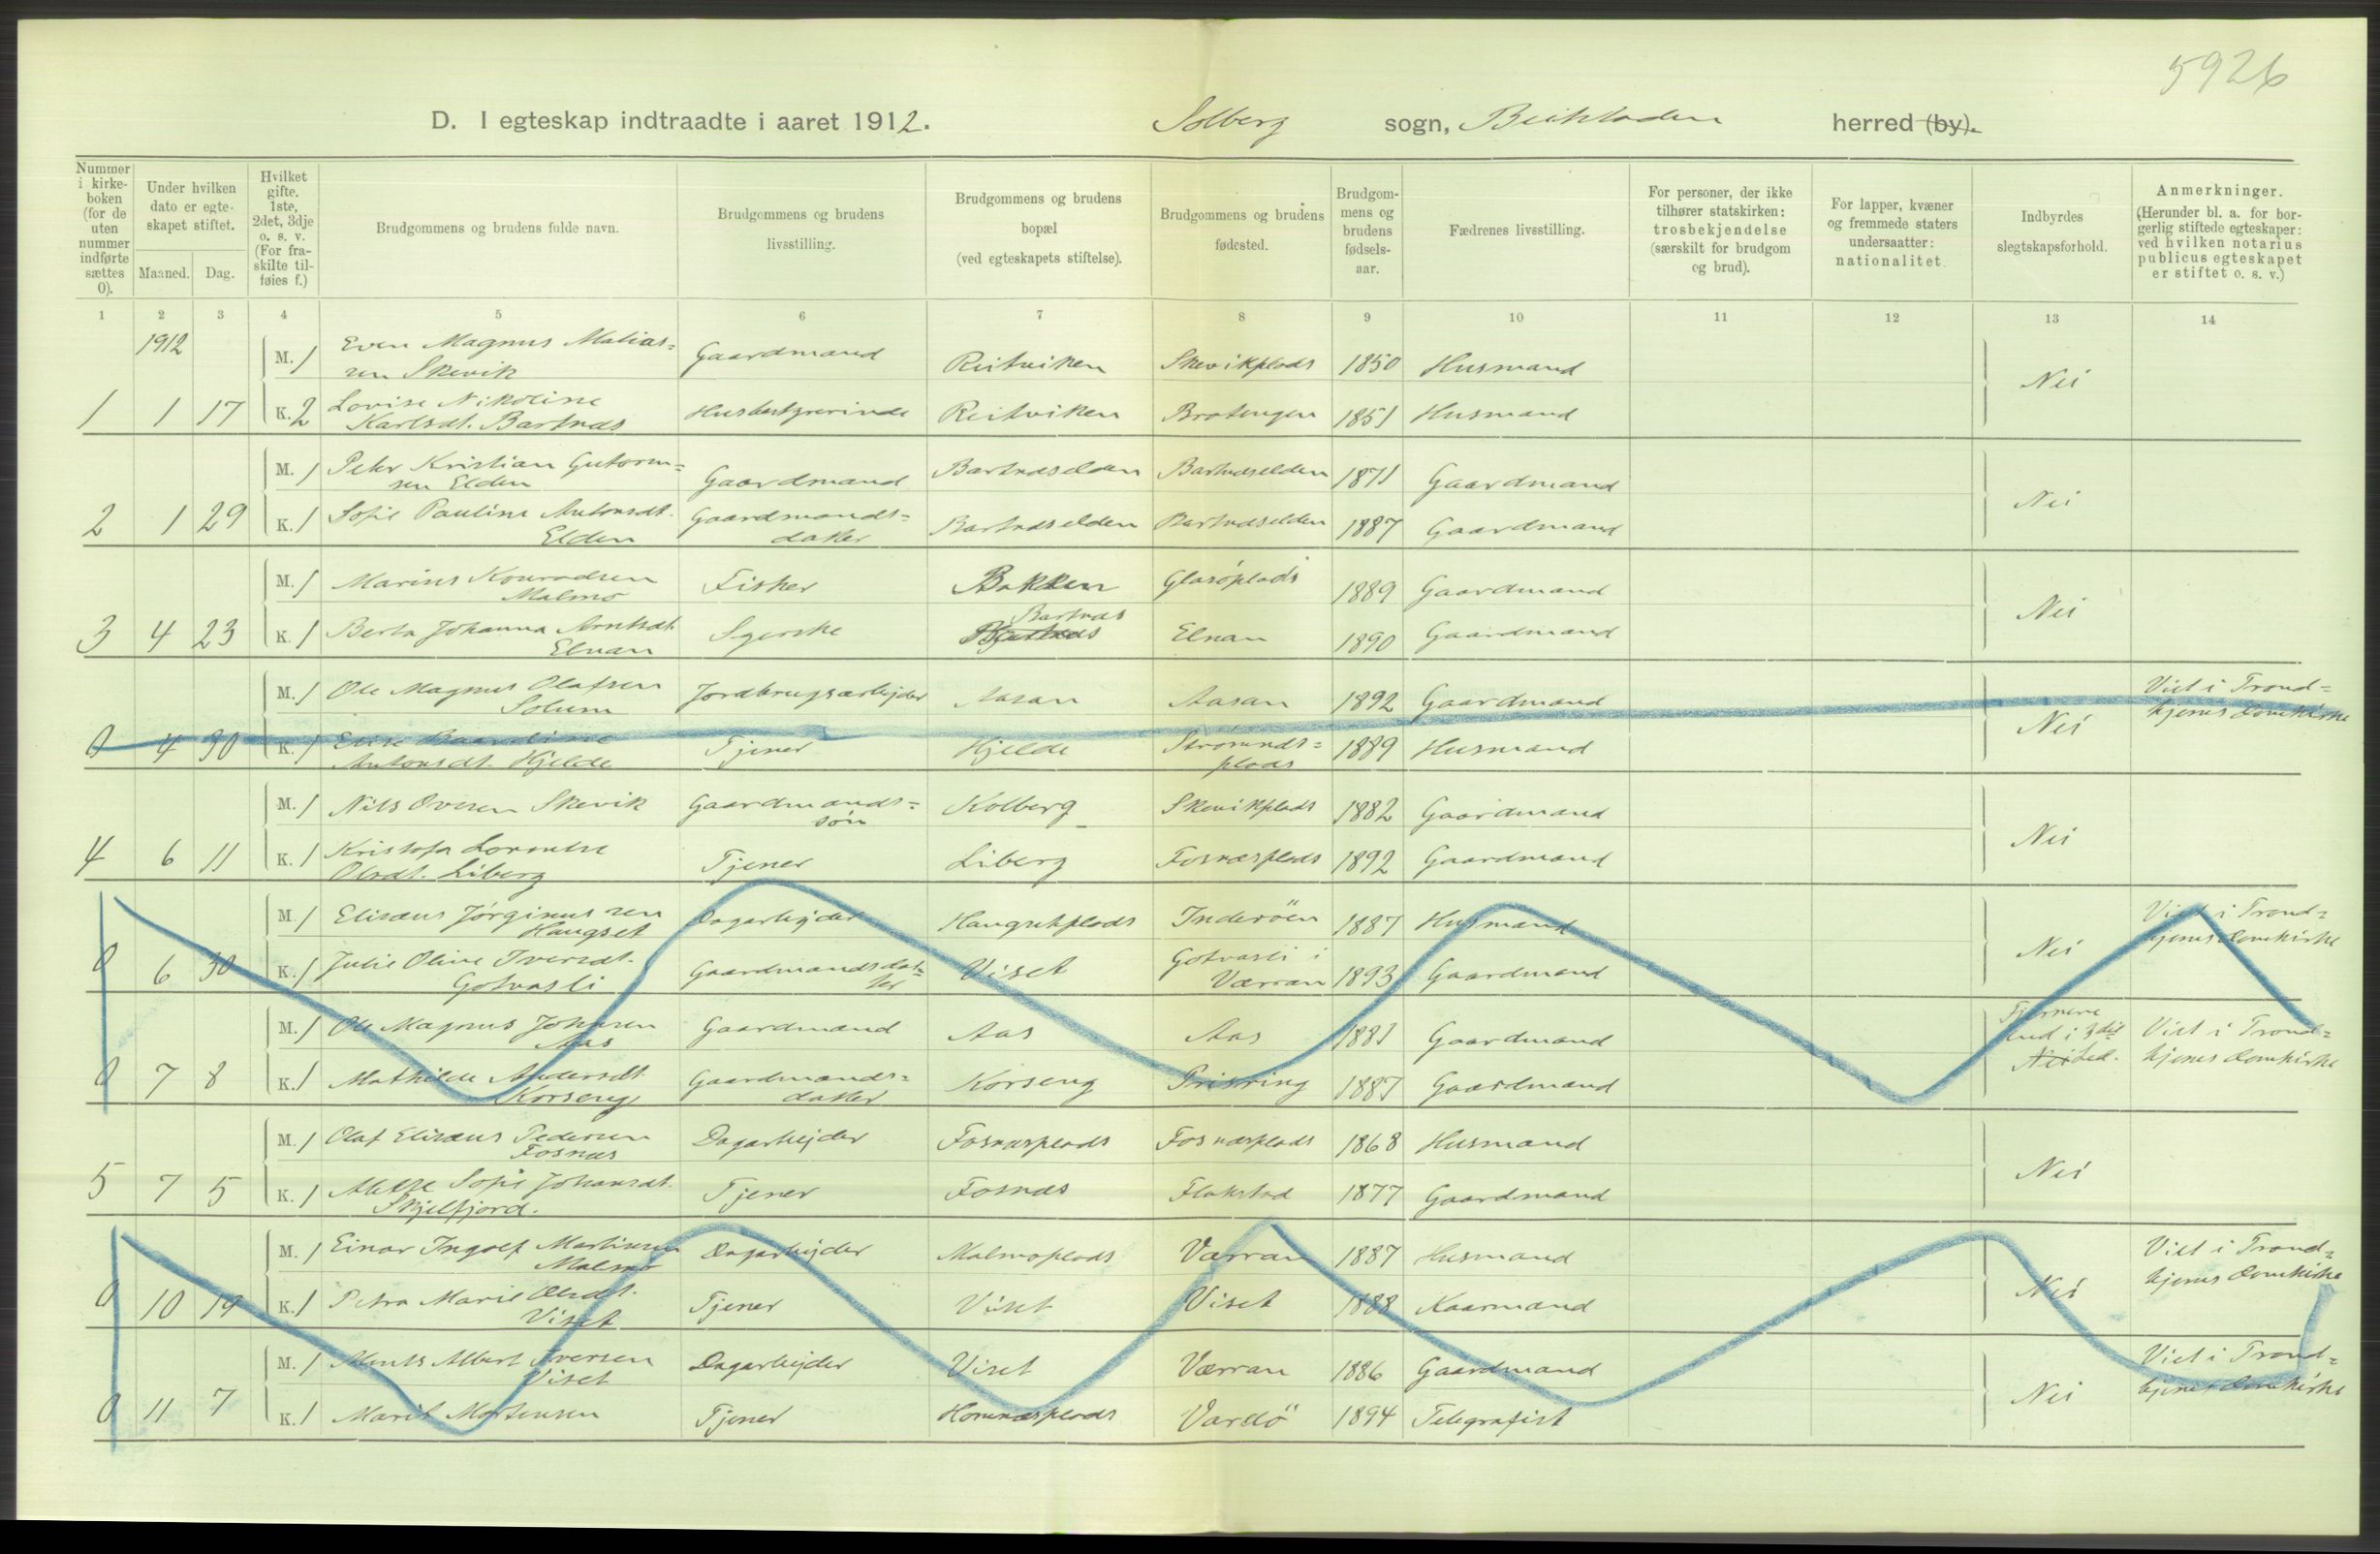 5926
D. I egteskap indtraadte i aaret 1912. Solberg sogn, Beitstaden herred (by).
Nummer i kirke-boken (for de uten nummer indførte sættes 0).
Under hvilken dato er egte-skapet stiftet.
Maaned. Dag.
Hvilket gifte. 1ste, 2det, 3dje o. s. v. (For fra-skilte til-føies f.)
Brudgommens og brudens fulde navn.
Brudgommens og brudens livsstilling.
Brudgommens og brudens bopæl (ved egteskapets stiftelse).
Brudgommens og brudens fødested.
Brudgom-mens og brudens fødsels-aar.
Fædrenes livsstilling.
For personer, der ikke tilhører statskirken: trosbekjendelse (særskilt for brudgom og brud).
For lapper, kvæner og fremmede staters undersaatter: nationalitet.
Indbyrdes slegtskapsforhold.
Anmerkninger. (Herunder bl. a. for bor-gerlig stiftede egteskaper: ved hvilken notarius publicus egteskapet er stiftet o. s. v.)
1 2 3 4 5 6 7 8 9 10 11 12 13 14
1912
M. 1 Even Magnus Matias=
sen Skevik Gaardmand Reitviken Skevikplads 1850 Husmand Nei
1 1 17 K. 2 Lovise Nikoline
Karlsdt. Bartnæs Husbestyrerinde Reitviken Bratengen 1851 Husmand
M. 1 Peter Kristian Gutorm=
sen Elden Gaardmand Bartnæselden Bartnæselden 1871 Gaardmand Nei
2 1 29 K. 1 Sofie Pauline Antonsdt.
Elden Gaardmands=
datter Bartnæselden Bartnæselden 1887 Gaardmand
M. 1 Marius Konradsen
Malmo Fisker Bakken Glasøplads 1889 Gaardmand Nei
Bartnæs
3 4 23 K. 1 Berta Johanna Arntsdt.
Elnan Syerske Elnan 1890 Gaardmand
M. 1 Ole Magnus Olafsen
Solum Jordbrugsarbejder Aasan Aasan 1892 Gaardmand Nei Viet i Trond=
hjems Domkirke
0 4 30 K. 1 Elise Baardine
Antonsdt. Hjelde Tjener Hjelde Strømnds=
plads 1889 Husmand
M. 1 Nils Ovesen Skevik Gaardmands=
søn Kolberg Skevikplads 1882 Gaardmand Nei
4 6 11 K. 1 Kristofa Lorentse
Olsdt. Liberg Tjener Liberg Fosnæsplads 1892 Gaardmand
M. 1 Elisæus Jørginussen
Haugset Dagarbejder Haugsetplads Inderøen 1887 Husmand Nei Viet i Trond=
hjems Domkirke
0 6 30 K. 1 Julie Oline Iversdt.
Gotvasli Gaardmandsdat=
ter Viset Gotvasli i
Værran 1893 Gaardmand
M. 1 Ole Magnus Johnsen
Aas Gaardmand Aas Aas 1881 Gaardmand Viet i Trond=
hjems Domkirke
0 7 8 K. 1 Mathilde Andersdt.
Korseng Gaardmands=
datter Korseng 1887 Gaardmand
M. 1 Olaf Elisæus Pedersen
Fosnæs Dagarbejder Fosnæsplads Fosnæsplads 1868 Husmand Nei
5 7 5 K. 1 Mette Sofie Johansdt.
Skjelfjord. Tjener Fosnæs Flakstad 1877 Gaardmand
M. 1 Einar Ingolf Martinsen
Malmo Dagarbejder Malmoplads Værran 1887 Husmand Nei Viet i Trond=
hjems Domkirke
0 10 19 K. 1 Petra Marie Olsdt.
Viset Tjener Viset Viset 1888 Kaarmand
M. 1 Ments Albert Iversen
Viset Dagarbejder Viset Værran 1886 Gaardmand Nei Viet i Trond=
hjems Domkirke
0 11 7 K. 1 Marit Mortensen Tjener Homnæsplads Vardö 1894 Telegrafist